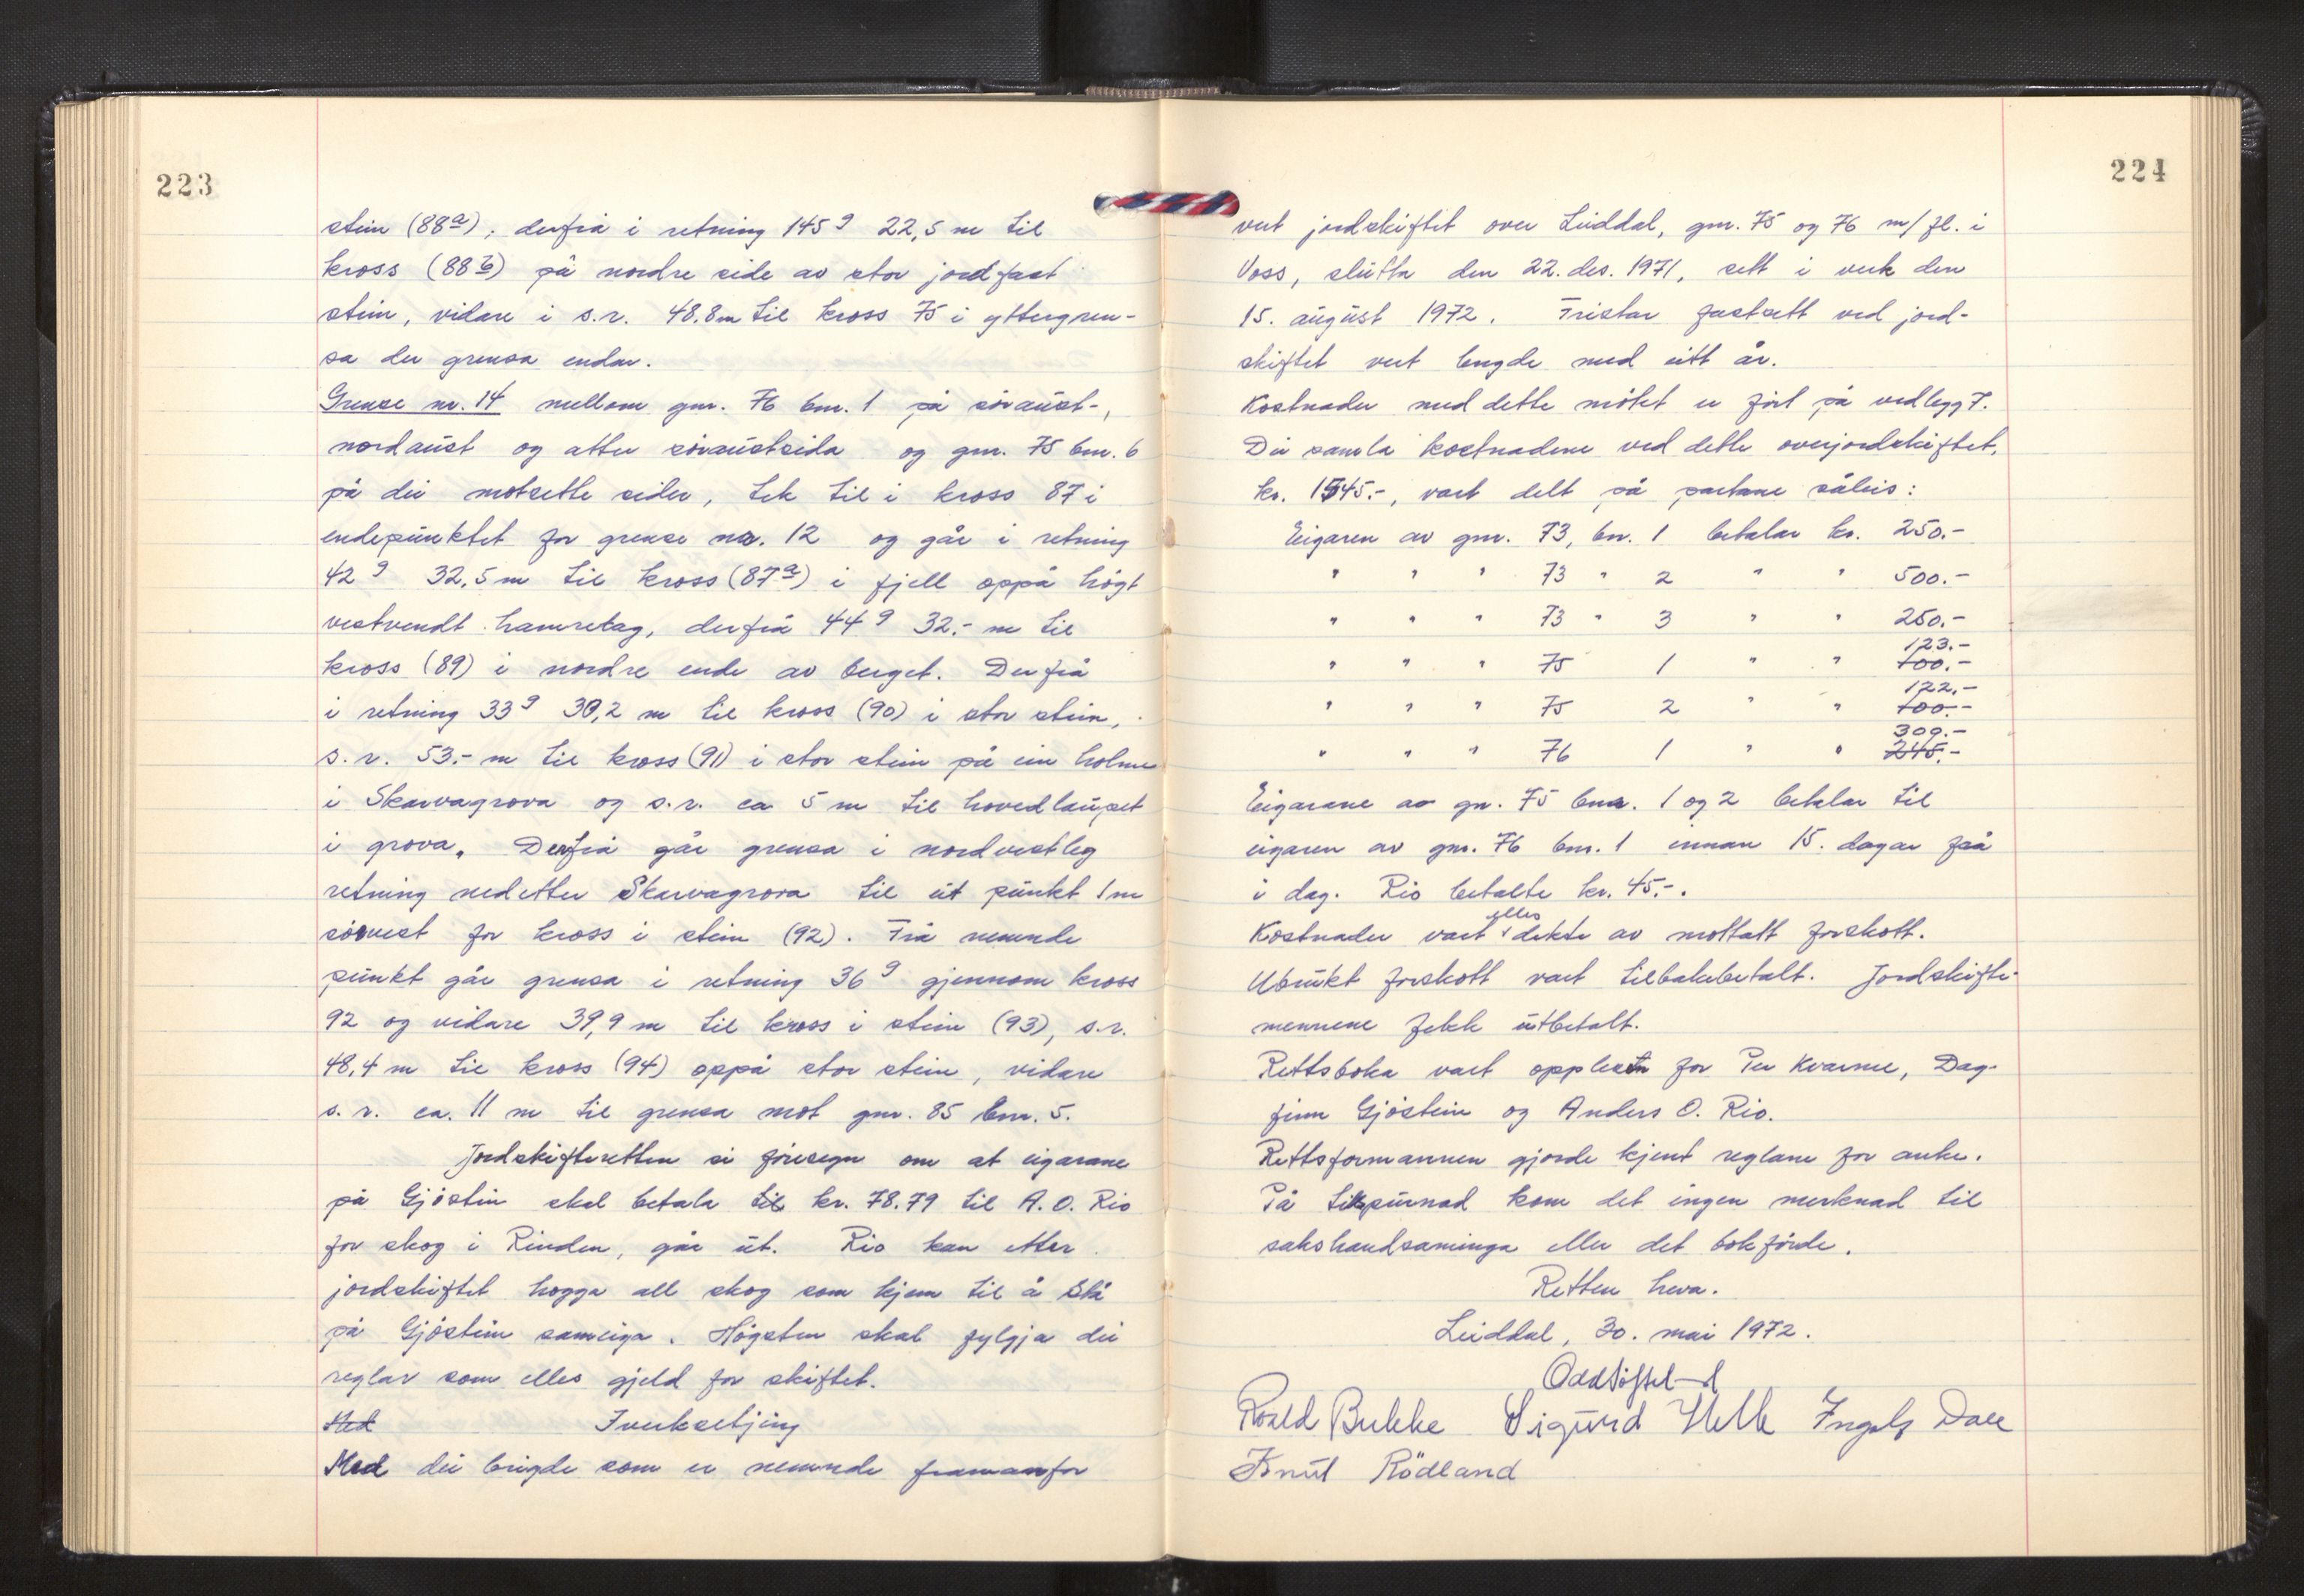 223
stein (88a), derfrå i retning 145g 22,5 m til
kross (88b) på nordre side av stor jordfast
stein, vidare i s.r. 48.8m til kross 75 i yttergren-
sa der grensa endar.
Grense nr. 14 mellom gnr. 76 bnr. 1 på söraust-,
nordaust og atter söraustsida og gnr. 75 bnr. 6
på dei motsette sider, tek til i kross 87 i
endepunktet for grense nr. 12 og går i retning
42g 32,5 m til kross (87a) i fjell oppå högt
vestvendt hamretag, derfrå 44g 32.- m til
kross (89) i nordre ende av berget. Derfrå
i retning 33g 30,2 m til kross (90) i stor stein,
s.r. 53.- m til kross (91) i stor stein på ein holme
i Skarvagrova og s.r. ca 5 m til hovedlaupet
i grova. Derfrå går grensa i nordvestleg
retning nedetter Skarvagrova til eit punkt 1 m
sörvest for kross i stein (92). Frå nemnde
punkt går grensa i retning 36g gjennom kross
92 og vidare 39,9 m til kross i stein (93), s.r.
48,4 m til kross (94) oppå stor stein, vidare
s.r. ca. 11 m til grensa mot gnr. 85 bnr. 5.
Jordskifteretten si föresegn om at eigarane
på Gjöstein skal betala til kr. 78.79 til A.O. Rio
for skog i Rinden, går ut. Rio kan etter
jordskiftet hogga all skog som kjem til å stå
på Gjöstein sameiga. Högsten skal fylgja dei
reglar som elles gjeld for skiftet.
Med Iverksetjing
Med dei brigde som er nemnde framanfor
224
vert jordskiftet over Leiddal, gnr. 75 og 76 m/fl. i
Voss, slutta den 22. des. 1971, sett i verk den
15. august 1972. Fristar fastsett ved jord-
skiftet vert lengde med eitt år.
Kostnader med dette mötet er fört på vedlegg 7.
Dei samla kostnadene ved dette overjordskiftet,
kr. 1545.-, vart delt på partane såleis:
Eigaren av gnr. 73, bnr. 1 betalar kr. 250.-
" " " 73 " 2 " " 500.-
" " " 73 " 3 " " 250.-
123.-
" " " 75 1 " " 100.-
122.-
" " " 75 2 " " 100.-
309.-
" " " 76 1 " " 245.-
Eigarane av gnr. 75 bnr. 1 og 2 betalar til
eigaren av gnr. 76 bnr. 1 innan 15. dagar frå
i dag. Rio betalte kr. 45.-.
elles
Kostnader vart dekte av mottatt forskott.
Ubrukt forskott vart tilbakebetalt. Jordskifte-
mennene fekk utbetalt.
Rettsboka vart opplesen for Per Kvarme, Dag-
finn Gjöstein og Anders O. Rio.
Rettsformannen gjorde kjent reglane for anke.
På tilspurnad kom det ingen merknad til
sakshandsaminga eller det bokförde.
Retten heva.
Leiddal, 30. mai 1972.
Roald Bukke Sigurd Helle Ingolf Dale
Knut Rödland